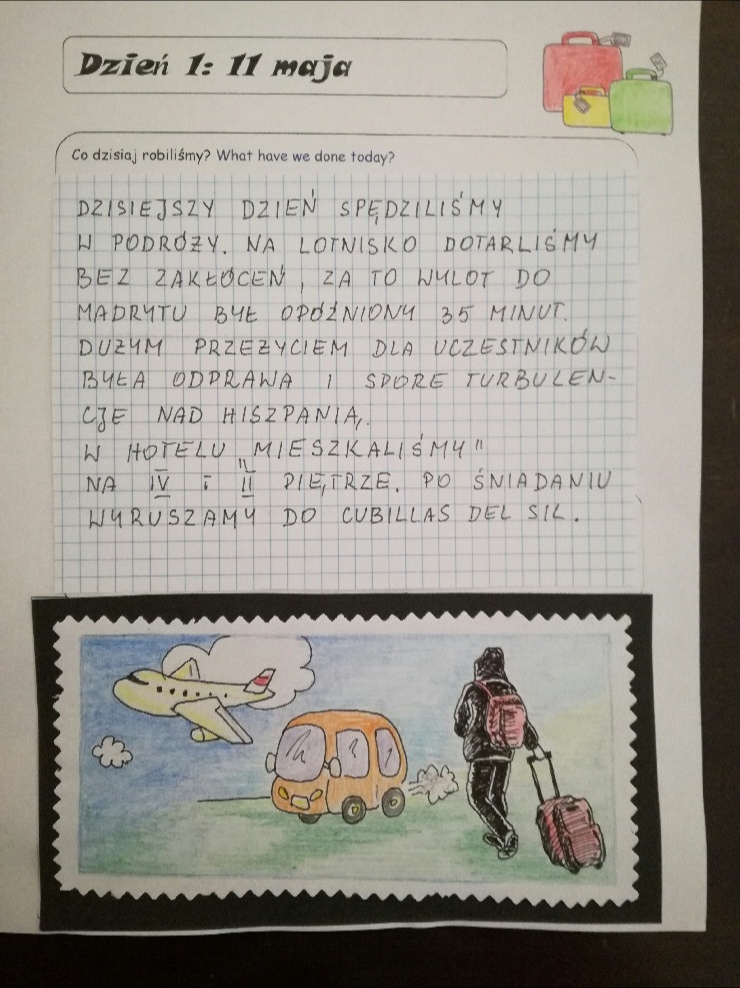 Dzień 1: 11 maja
Co dzisiaj robiliśmy? What have we done today?
DZISIEJSZY DZIEŃ SPĘDZILIŚMY
W PODRÓŻY. NA LOTNISKO DOTARLIŚMY
BEZ ZAKŁÓCEŃ, ZA TO WYLOT DO
MADRYTU BYŁ OPÓŹNIONY 35 MINUT.
DUŻYM PRZEŻYCIEM DLA UCZESTNIKÓW
BYŁA ODPRAWA I SPORE TURBULEN-
CJE NAD HISZPANIĄ.
W HOTELU „MIESZKALIŚMY"
NA IV i II PIĘTRZE. PO ŚNIADANIU
WYRUSZAMY DO CUBILLAS DEL SIL.